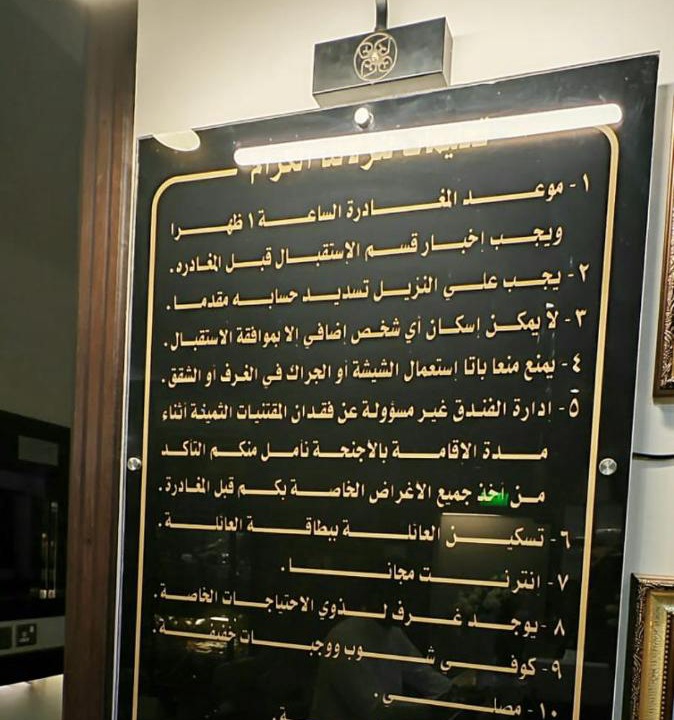 الكرام
١- موعد المغادرة الساعة ١ ظهرا
ويجب اخبار قسم الإستقبال قبل المغادره .
٢- يجب علي النزيل تسديد حسابه مقدما .
٣- لا يمكن إسكان أي شخص إضافي إلا بموافقة الاستقبال .
٤- يمنع منعا باتا إستعمال الشيشة أو الجراك في الغرف أو الشقق .
٥- إدارة الفندق غير مسؤولة عن فقدان المقتنيات الثمينة أثناء
مدة الإقامة بالأجنحة نأمل منكم التأكد
من أخذ جميع الاغراض الخاصة بكم قبل المغادرة .
٦- تسكين العائلة ببطاقة العائلة .
٧- انترنت مجانا .
٨- يوجد غرف لذوي الاحتياجات الخاصة .
٩- كوفي شوب ووجبات خفيفة .
١٠- مصلي .